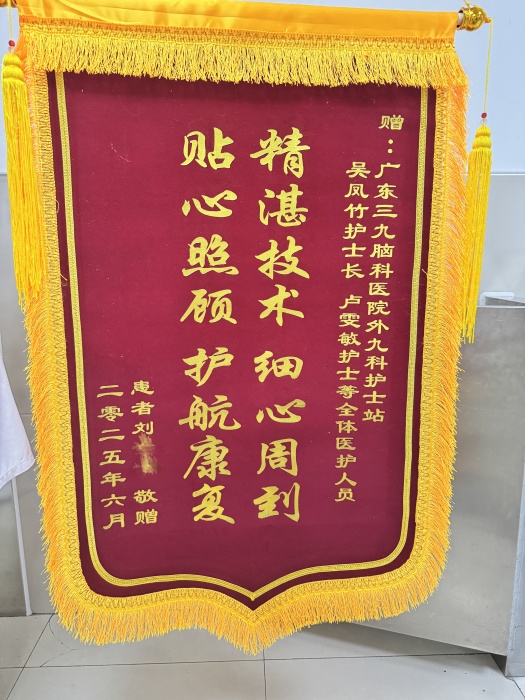 赠：广东三九脑科医院外九科护士站
吴凤竹护士长 卢雯敏护士等全体医护人员
精湛技术 细心周到
贴心照顾 护航康复
患者刘 敬赠
二零二五年六月